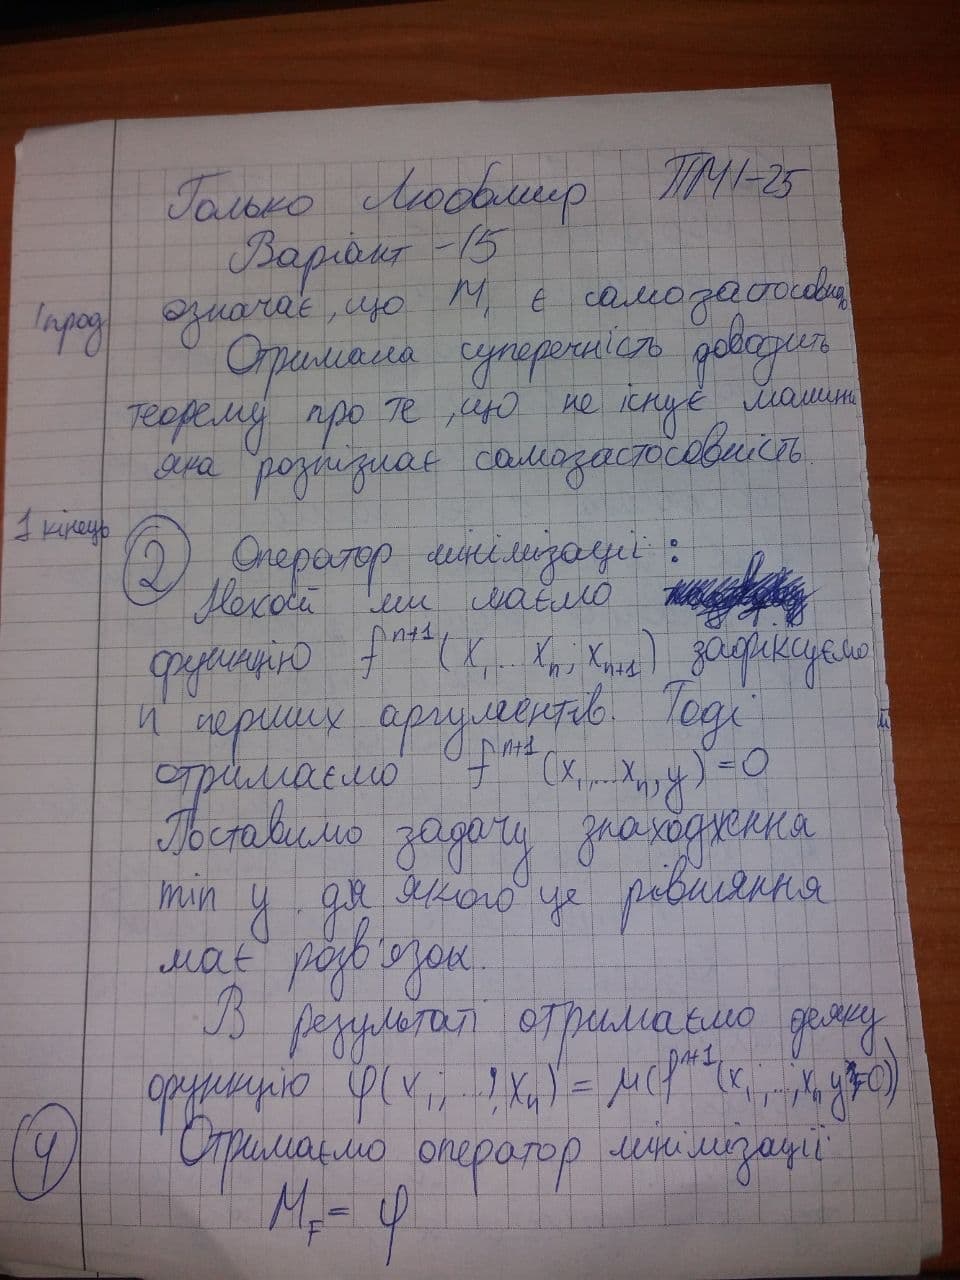 Голько Любомир ПМІ-25
Варіант -15
1 прод
означає, що М₁ є самозастосовна
Отримана суперечність доводить
теорему про те, що не існує машини
яка розпізнає самозастосовність.
1 кінець
2 Оператор мінімізації:
Нехай ми маємо
функцію fⁿ⁺¹(x₁...xₙ; xₙ₊₁) зафіксуємо
n перших аргументів. Тоді
отримаємо fⁿ⁺¹(x₁,...xₙ, y) = 0
Поставимо задачу знаходження
min y для якого це рівняння
має розв'язок.
В результаті отримаємо деяку
функцію φ(x₁;...; xₙ) = μ(fⁿ⁺¹(x₁;...; xₙ y)=0)
Отримаємо оператор мінімізації
M_F = φ